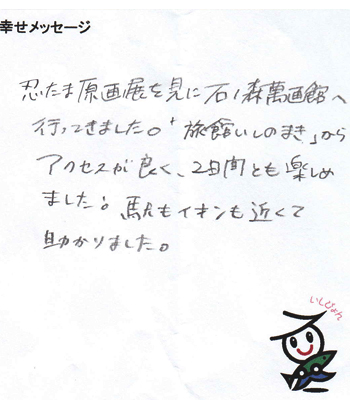 幸せメッセージ
忍たま原画展を見に石ノ森萬画館へ
行ってきました。「旅館いしのまき」から
アクセスが良く、2日間とも楽しめ
ました。駅もイオンも近くて
助かりました。
いしぴょん